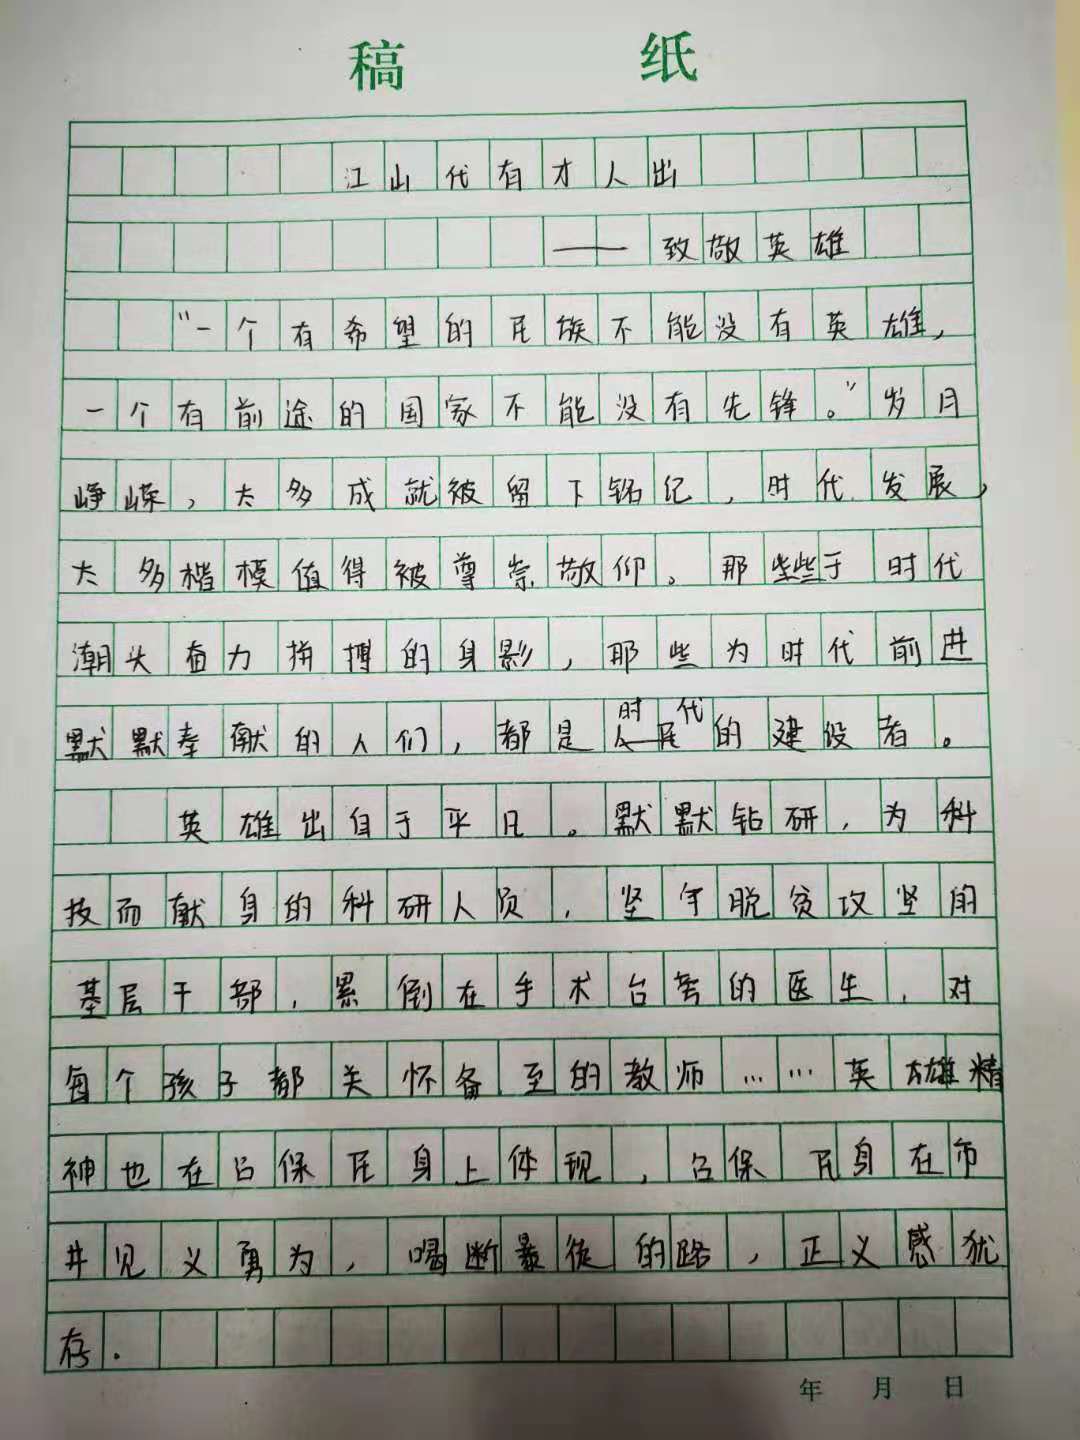 稿 纸
江山代有才人出
——致敬英雄
“一个有希望的民族不能没有英雄，
一个有前途的国家不能没有先锋。”岁月
峥嵘，太多成就被留下铭纪，时代发展，
太多楷模值得被尊崇敬仰。那些些于时代
潮头奋力拼搏的身影，那些为时代前进
默默奉献的人们，都是时代的建设者。
英雄出自于平凡。默默钻研，为科
技而献身的科研人员，坚守脱贫攻坚的
基层干部，累倒在手术台旁的医生，对
每个孩子都关怀备至的教师……英雄精
神也在吕保民身上体现，吕保民身在市
井见义勇为，喝断暴徒的路，正义感犹
存.
年 月 日